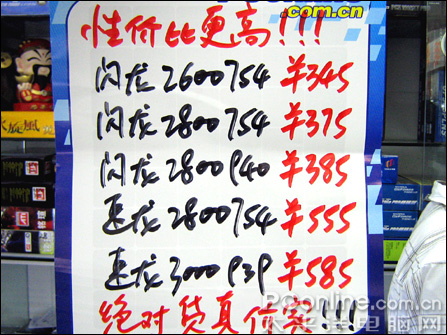 .com.cn
性价比更高!!!
闪龙2600754 ¥345
闪龙2800754 ¥375
闪龙2800940 ¥385
速龙2800754 ¥555
速龙3000939 ¥585
绝对货真价实!!!
PConline.com.cn
太平洋电脑网